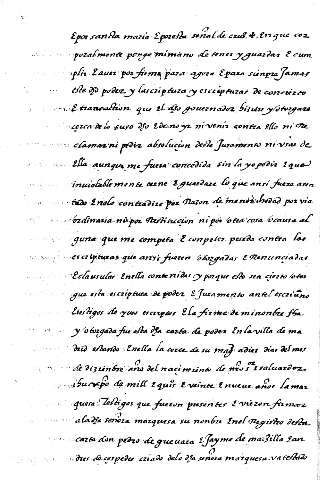 E por sancta maria E por esta señal de cruz ✝ En que cor
poralmente pongo mi mano de tener y guardar E cum
plir E aver por firme para agora E para sienpre Jamas
este dho poder y la scriptura y escripturas de convierto
E transaction que el dho governador hiziere y otorgare
cerca de lo suso dho E de no yr ni venir contra Ello ni Re
clamar ni pedir absolucion deste Juramento ni usar de
Ella aunque me fuera concedida sin la yo pedir E que
inviolablemente terne E guardare lo que ansi fuera asen
tado En lo contradire por Razon de menor hedad por via
ordinaria ni por Restitucion ni por otra cosa o causa al
guna que me competa E conpeter pueda contra las
escripturas que ansi fueren otorgadas E Renunciadas
E clausulas En ella contenidas y porque esto sea cierto otor
gue esta escriptura de poder E Juramento antel escrivano
E testigos de yuso escriptos E la firme de mi nonbre fha
y otorgada fue esta dha carta de poder En la villa de ma
drid estando En ella la corte de su magt a diez dias del mes
de dizienbre año del nascimiento de nro sr E salvador
ihu xpo de mill E quis E veinte E nueve años la mar
quesa Testigos que fueron presentes E vieron firmar
a la dha señora marquesa su nonbre En el Registro desta
carta don pedro de guevara E Jayme de marzilla E an
dres de cespedes criado de la dha señora marquesa va testado